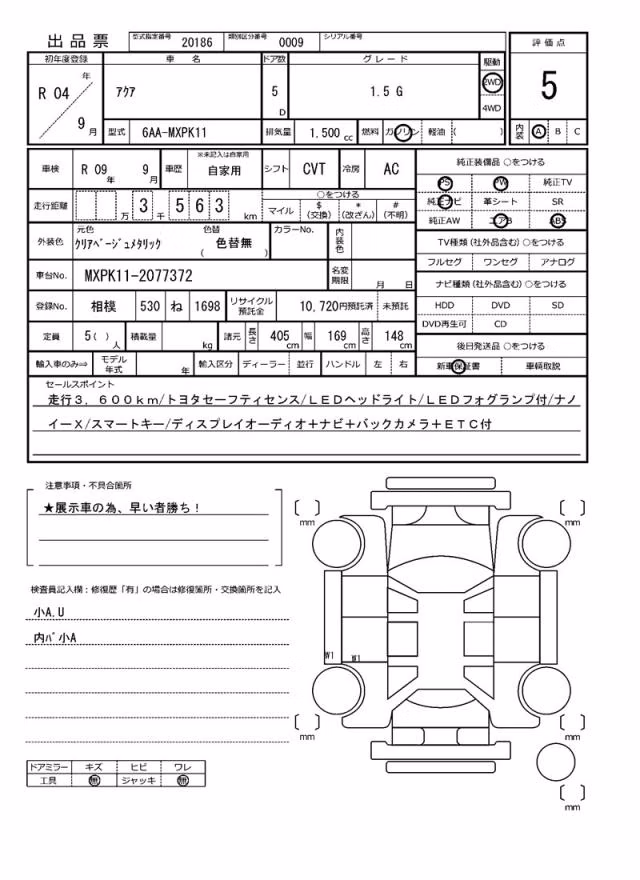 出品票 型式指定番号 20186 類別区分番号 0009 シリアル番号
評価点
5
内装 A B C
初年度登録 車名 ドア数 グレード 駆動
R 04 年 9 月 ｱｸｱ 5 D 1.5 G 2WD 4WD
型式 6AA-MXPK11 排気量 1.500 cc 燃料 ガソリン 軽油 ( )
車検 R 09 年 9 月 車歴 ※未記入は自家用 自家用 シフト CVT 冷房 AC
純正装備品 ○をつける
PS PW 純正TV
純正ナビ 革シート SR
純正AW エアB ABS
走行距離 万 3 千 5 6 3 km
○をつける
マイル $ (交換) * (改ざん) # (不明)
外装色 元色 ｸﾘｱﾍﾞｰｼﾞｭﾒﾀﾘｯｸ 色替 ( 色替無 ) カラーNo. 内装色
TV種類 (社外品含む) ○をつける
フルセグ ワンセグ アナログ
車台No. MXPK11-2077372 名変期限 月 日
ナビ種類 (社外品含む) ○をつける
HDD DVD SD
DVD再生可 CD
登録No. 相模 530 ね 1698 リサイクル預託金 10,720円預託済 未預託
定員 5 ( ) 人 積載量 kg 諸元 長さ 405 cm 幅 169 cm 高さ 148 cm
後日発送品 ○をつける
新車保証書 車輌取説
輸入車のみ⇒ モデル年式 年 輸入区分 ディーラー 並行 ハンドル 左 右
セールスポイント
走行３．６００ｋｍ/トヨタセーフティセンス/ＬＥＤヘッドライト/ＬＥＤフォグランプ付/ナノ
イーＸ/スマートキー/ディスプレイオーディオ＋ナビ＋バックカメラ＋ＥＴＣ付
注意事項・不具合箇所
★展示車の為、早い者勝ち！
検査員記入欄：修復歴「有」の場合は修復箇所・交換箇所を記入
小A.U
内ﾊﾞ小A
mm mm
W1 W1
mm mm
mm
ドアミラー キズ ヒビ ワレ
工具 無 ジャッキ 無